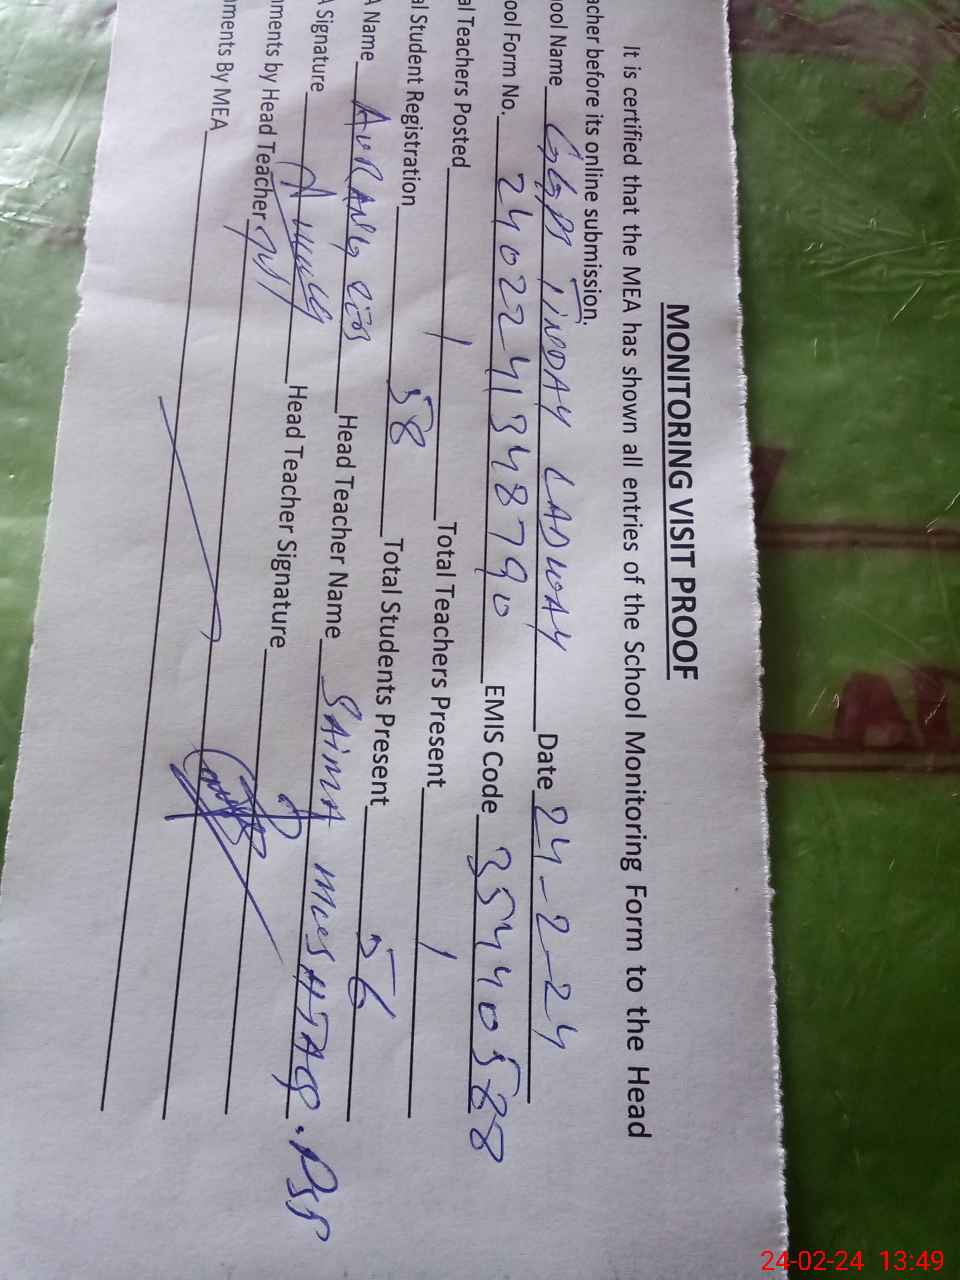 MONITORING VISIT PROOF
It is certified that the MEA has shown all entries of the School Monitoring Form to the Head
acher before its online submission.
ool Name GGPS TINDAY LADWAY Date 24-2-24
ool Form No. 2402241348790 EMIS Code 35440588
al Teachers Posted 1 Total Teachers Present 1
al Student Registration 58 Total Students Present 56
A Name AURANG ZEB Head Teacher Name SAIMA MUSHTAQ. PST
A Signature Head Teacher Signature
mments by Head Teacher
mments By MEA
24-02-24 13:49